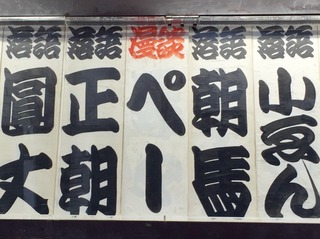 落語
小ゑん
落語
朝馬
漫談
ペー
落語
正朝
落語
圓丈